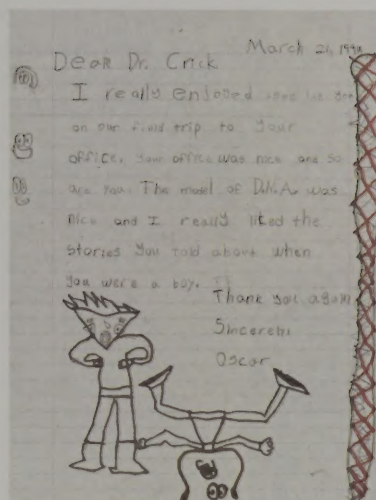 March 21, 199
Dear Dr. Crick
I really enjoyed
on our field trip to your
office. your office was nice and so
are you. The model of D.N.A. was
nice and I really liked the
stories you told about when
you were a boy.
Thank you again
Sincerely
Oscar